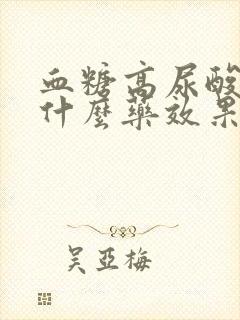 血糖高尿酸
什麼藥效果
吴亞梅